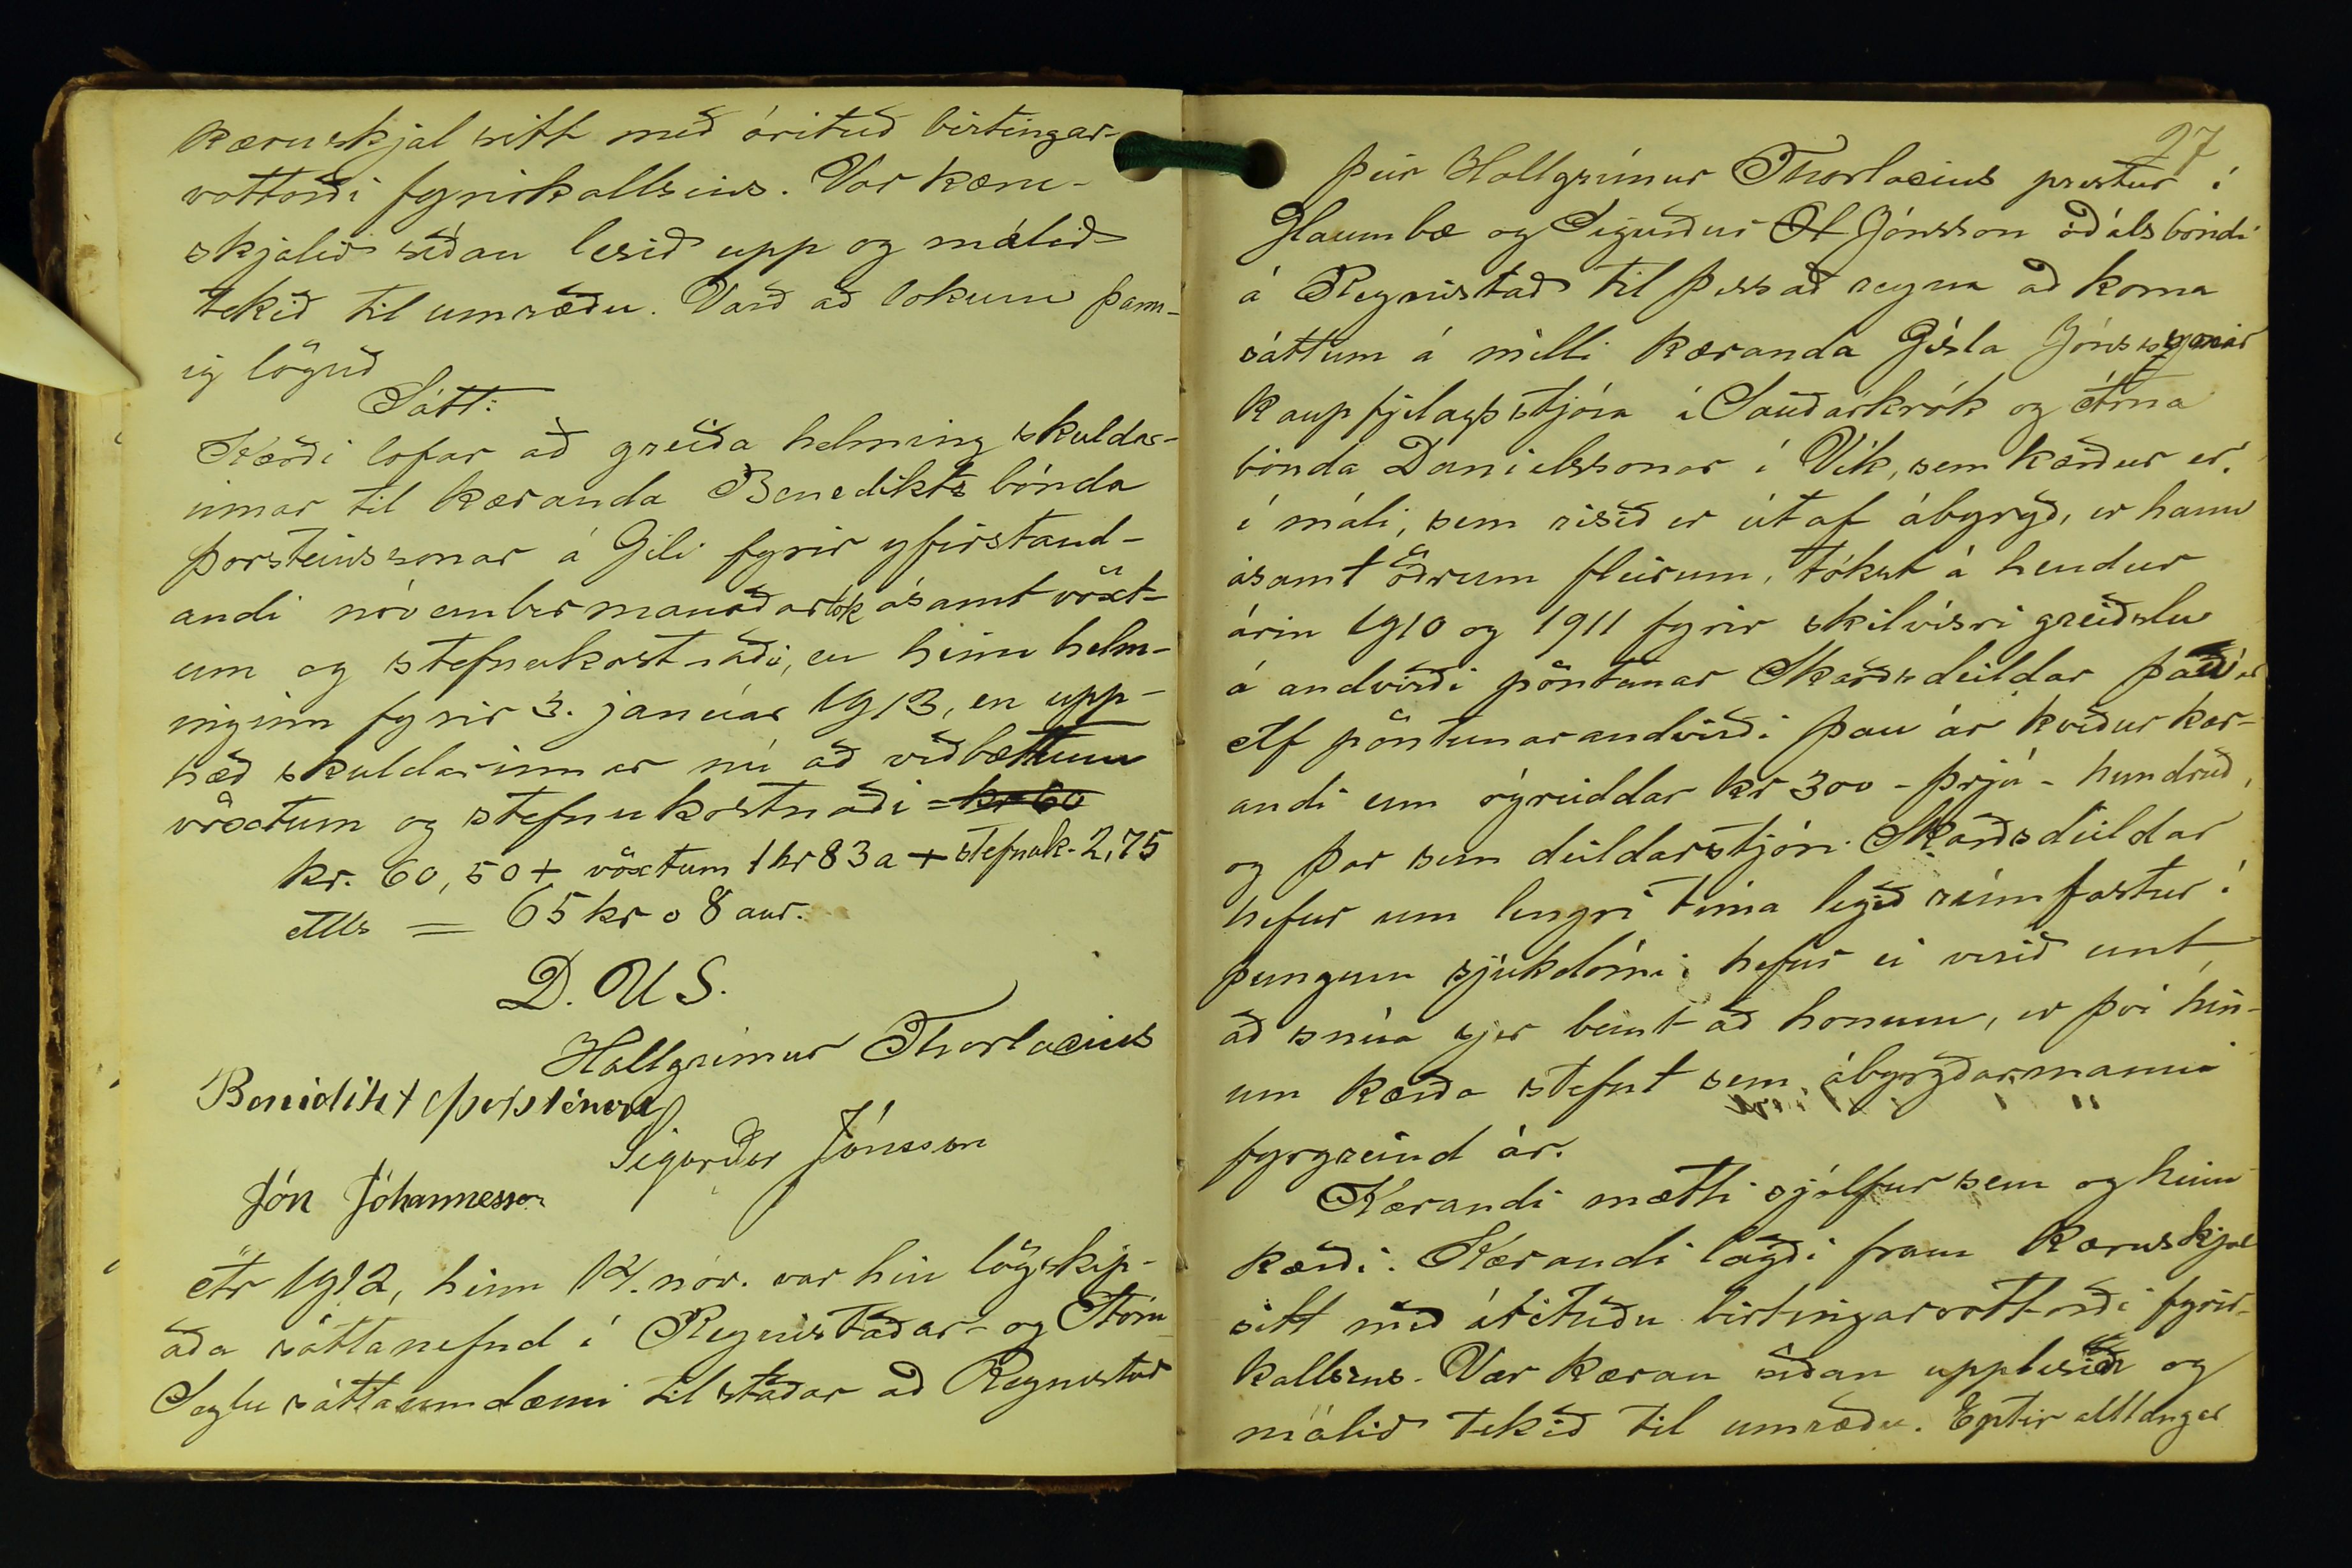 kæruskjal sitt með árituð birtingar-
vottorði fyrirkallsins. Var kæru-
skjalið síðan lesið upp og málið
tekið til umræðu. Varð að lokum þann-
ig löguð
Sátt:
Kærði lofar að greiða helming skuldar-
innar til kæranda Benedikts bónda
Þorsteinssonar á Gili fyrir yfirstand-
andi nóvembermánaðarlok ásamt vöxt-
um og stefnukostnaði, en hinn helm-
inginn fyrir 3. janúar 1913, en upp-
hæð skuldarinnar nú að viðbættum
vöxtum og stefnukostnaði = kr 60
kr. 60,50 + vöxtum 1 kr 83 a + stefnuk. 2,75
Alls = 65 kr 08 aur.
D. U S.
Hallgrímur Thorlacius
Benidikt Þorsteinsson
Sigurður Jónsson
Jón Jóhannesson
Ár 1912, hinn 14. nóv. var hin lögskip-
aða sáttanefnd í Reynistaðar- og Stóru-
Seylu sáttaumdæmi til staðar að Reynistað
27
þeir Hallgrímur Thorlacius prestur í
Glaumbæ og Sigurður Jónsson óðalsbóndi
á Reynistað til þess að reyna að koma
sáttum á milli kæranda Gísla Jónssonar
kaupfjelagsstjóra í Sauðárkrók og Árna
bónda Daníelssonar í Vík, sem kærður er,
í máli, sem risið er út af ábyrgð, er hann
ásamt öðrum fleirum, tókst á hendur
árin 1910 og 1911 fyrir skilvísri greiðslu
á andvirði pöntunar Skarðsdeildar það ár
Af pöntunarandvirði þau ár kveður kær-
andi um ógreiddar kr 300 - þrjú - hundruð,
og þar sem deildarstjóri Skarðsdeildar
hefur um lengri tíma legið rúmfastur í
þungum sjúkdómi, hefur ei verið unt,
að snúa sjer beint að honum, er því hin-
um kærða stefnt sem ábyrgðarmanni
fyrgreind ár.
Kærandi mætti sjálfur sem og hinn
kærði. Kærandi lagði fram kæruskjal
sitt með árituðu birtingarvottorði fyrir-
kallsins. Var kæran síðan upplesin og
málið tekið til umræðu. Eptir alllangar